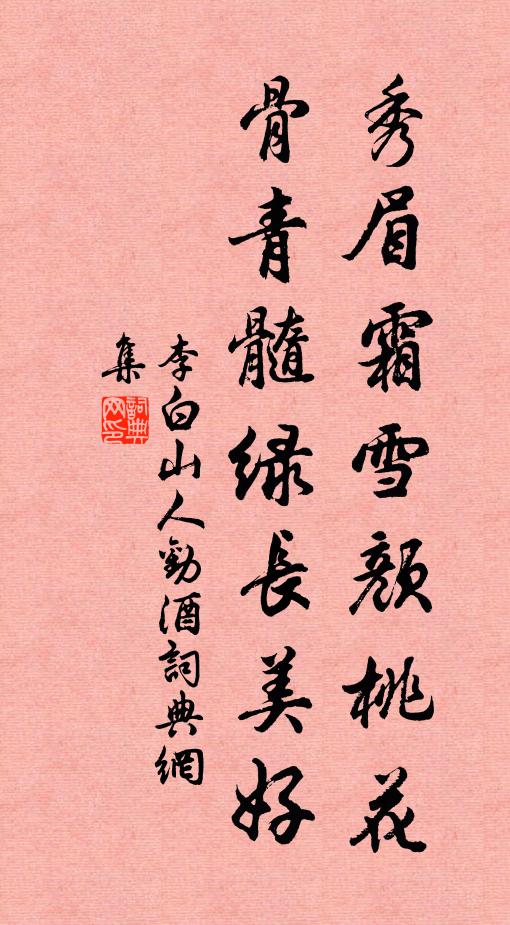 秀眉霜雪顏桃花
骨青髓綠長美好
李白山人勸酒詞典網
集
詞典
网印